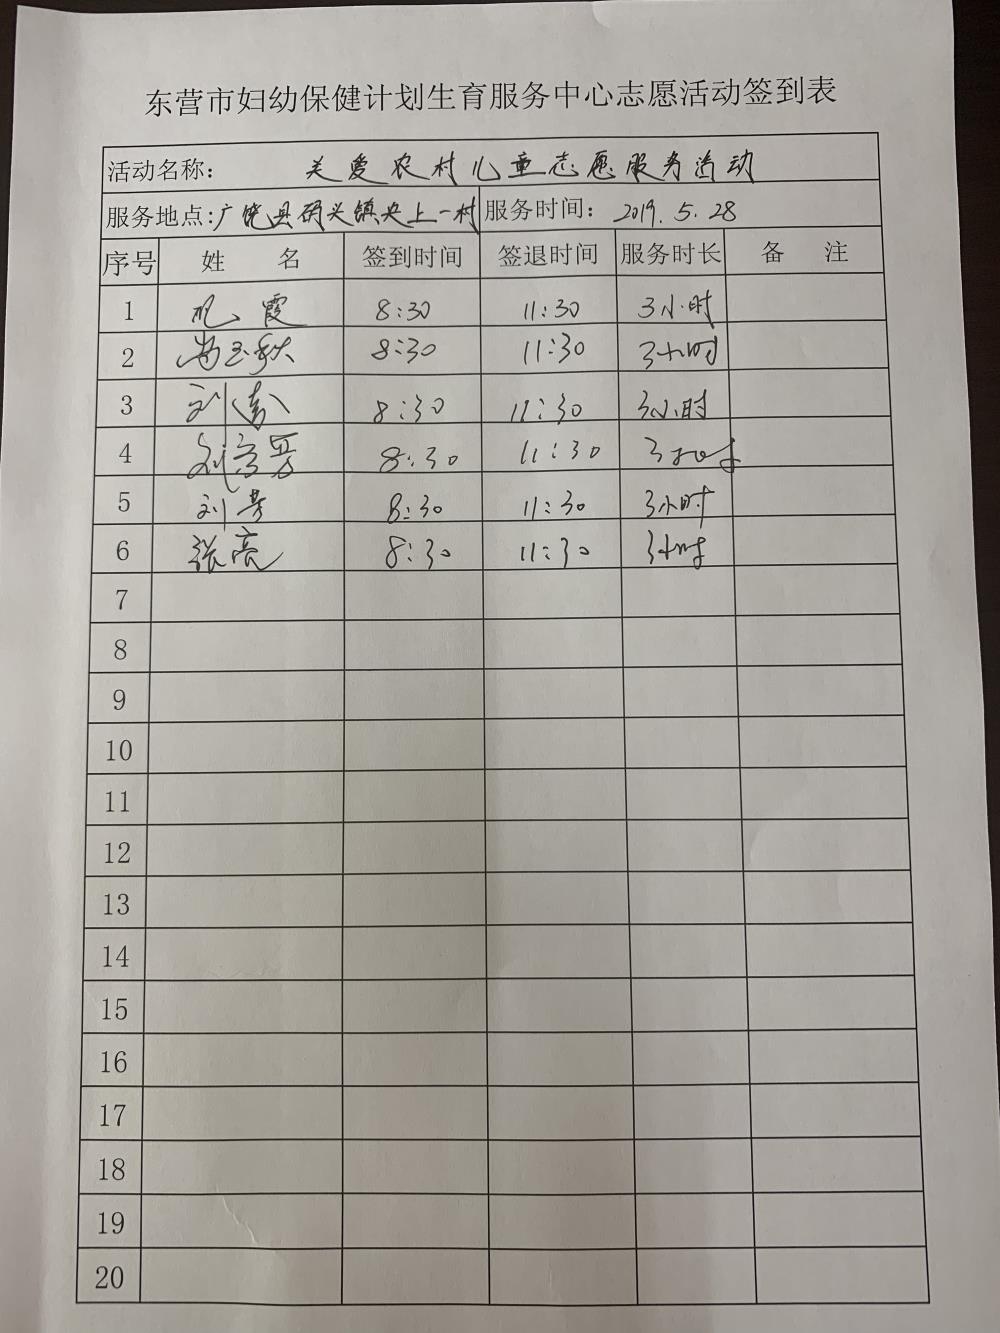 东营市妇幼保健计划生育服务中心志愿活动签到表
活动名称： 关爱农村儿童志愿服务活动
服务地点:广饶县码头镇央上一村 服务时间： 2019.5.28
序号 姓 名 签到时间 签退时间 服务时长 备 注
1 霞 8:30 11:30 3小时
2 玉秋 8:30 11:30 3小时
3 刘 8:30 11:30 3小时
4 刘 8:30 11:30 3小时
5 刘芳 8:30 11:30 3小时
6 张亮 8:30 11:30 3小时
7
8
9
10
11
12
13
14
15
16
17
18
19
20